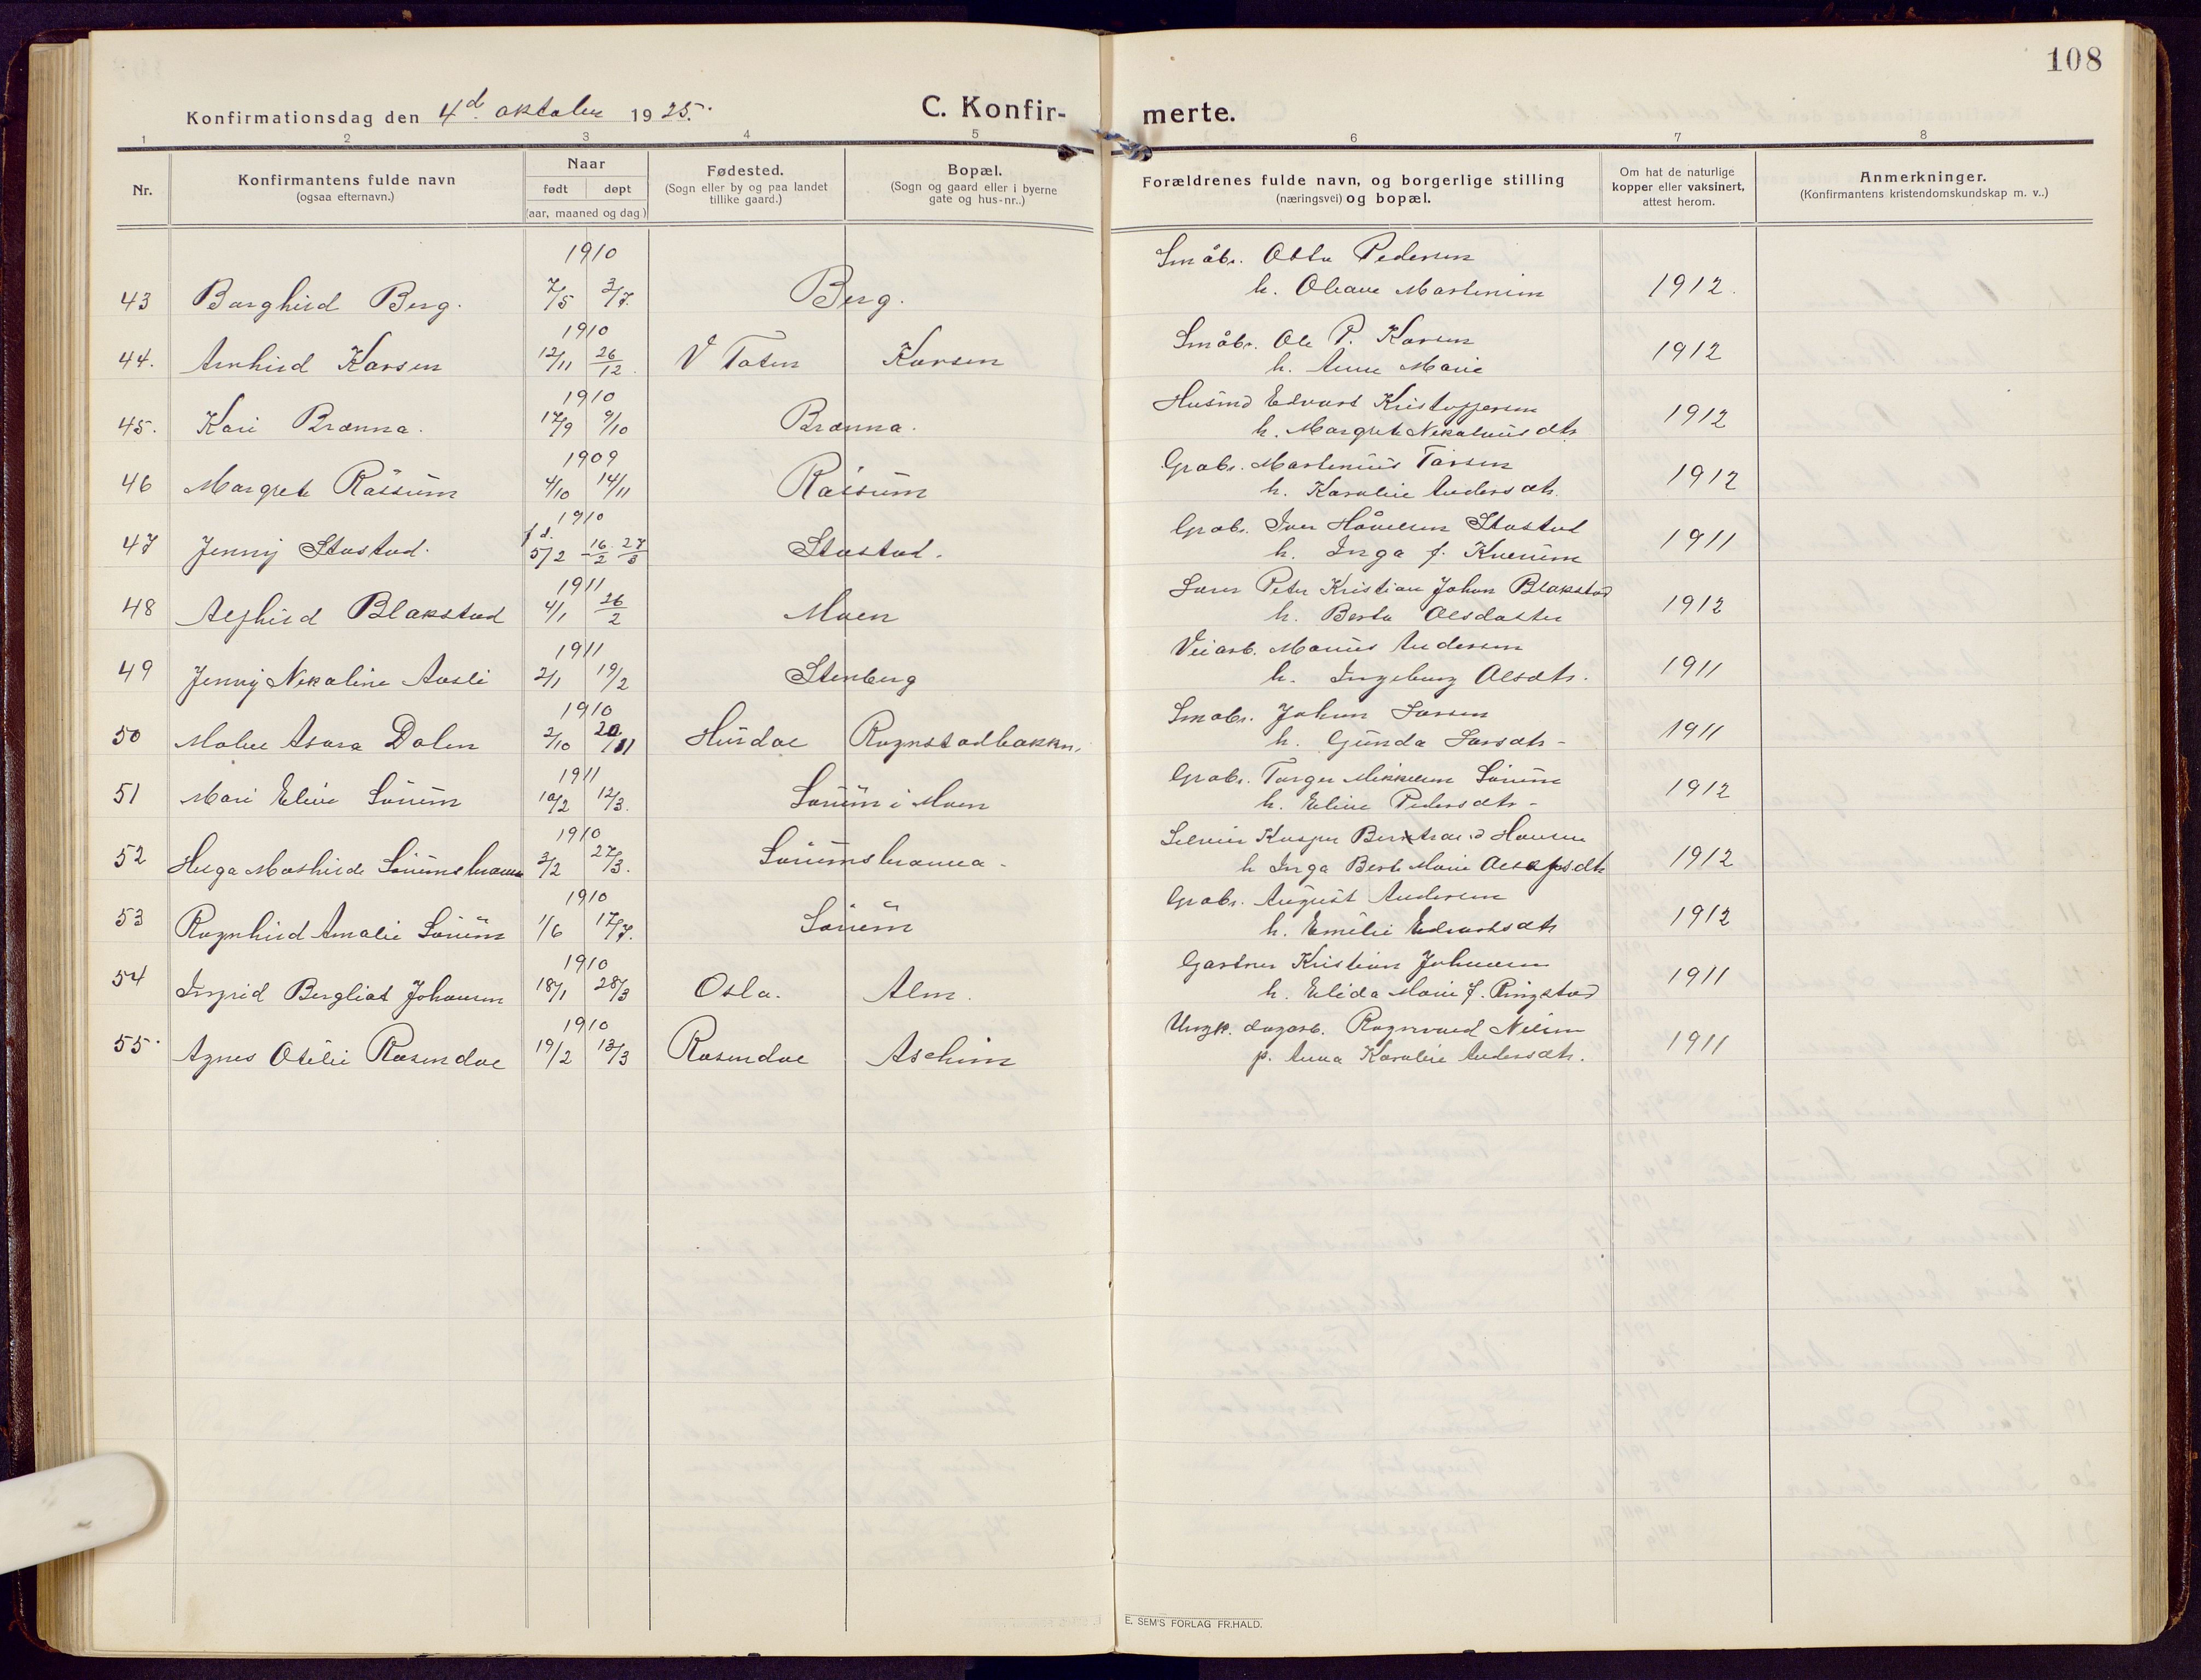 108
Konfirmationsdag den 4de oktober 1925.
C. Konfir-
merte.
1 2 3 4 5 6 7 8
Nr.
Konfirmantens fulde navn
(ogsaa efternavn.)
Naar
født døpt
(aar, maaned og dag)
Fødested.
(Sogn eller by og paa landet
tillike gaard.)
Bopæl.
(Sogn og gaard eller i byerne
gate og hus-nr..)
Forældrenes fulde navn, og borgerlige stilling
(næringsvei) og bopæl.
Om hat de naturlige
kopper eller vaksinert,
attest herom.
Anmerkninger.
(Konfirmantens kristendomskundskap m. v..)
1910 Småbr. Otto Pedersen
43 Borghild Berg. 7/5 3/7. Berg. h. Oleave Martinsen 1912.
1910 Småbr. Ole P. Karsen
44. Arnhild Karsen 12/11 26/12. V Toten Karsen h. Anne Marie 1912
1910 Husmd Edvart Kristoffersen
45. Kari Brænna. 17/9 9/10 Brænna. h. Margrete Nikolaisdtr 1912
1909 Grabr. Martinius Larsen
46 Margrete Råssum 4/10 14/11 Råssum h. Karoline Andersdtr. 1912
1910 Grabr. Iver Håvelsen Stastad
47 Jenny Stastad. f d. 5/2 16/2 27/3 Stastad. h. Inga f. Knerum 1911
1911 Peter Kristian Johan Blakstad
48 Alfhild Blakstad 4/1 26/2 Moen h. Berta Olsdatter 1912
1911 Veiarb. Marius Andersen
49 Jenny Nikoline Aasli 2/1 19/2 Stenberg h. Ingeborg Olsdtr. 1911
1910 Småbr. Johan Larsen
50 Asora Dalen 2/10 20/11 Hurdal Rognstadbakken. h. Gunda Larsdtr- 1911
1911 Grabr. Torger Mikkelsen Sörum
51 Mari Eline Sörum 10/2 12/3. Sörum i Moen h. Eline Pedersdtr- 1912
1910 Kasper Hansen
52 Helga Mathilde 3/2 27/3. h Inga Marie 1912
1910 Grabr. August Andersen
53 Ragnhild Amalie Sörum 1/6 17/7. Sörum h. Emilie Edvartsdtr 1912
1910 Gartner Kristian Johansen
54 Ingrid Bergliot Johansen 18/1 28/3 Oslo. Alm. h. Elida Marie f. Ringstad 1911
1910 Ungk. dagarb. Ragnvald Nilsen
55. Agnes Otilie Rosendal 19/2 13/3 Rosendal Askim p. Anna Karoline Andersdtr. 1911
E. SEM'S FORLAG FR.HALD.